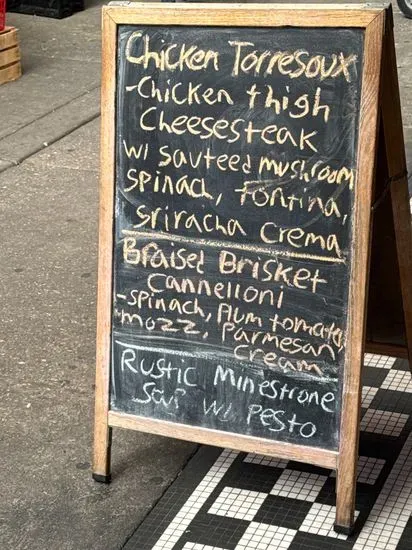 Chicken Torresoux
-Chicken thigh
Cheesesteak
w/ sauteed mushroom
spinach, Fontina,
sriracha crema
Braised Brisket
Cannelloni
-spinach, Plum tomato,
mozz, Parmesan
cream
Rustic Minestrone
Soup w/ Pesto